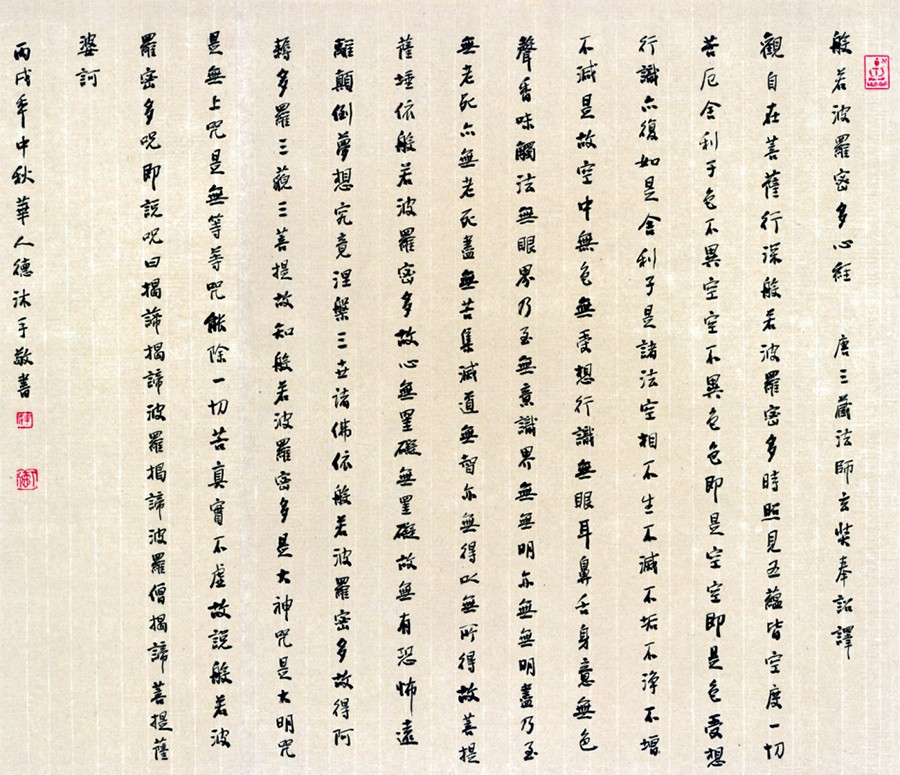 般若波羅密多心經 唐三藏法師玄奘奉詔譯
觀自在菩薩行深般若波羅密多時照見五蘊皆空度一切
苦厄舍利子色不異空空不異色色即是空空即是色受想
行識亦復如是舍利子是諸法空相不生不滅不垢不淨不增
不減是故空中無色無受想行識無眼耳鼻舌身意無色
聲香味觸法無眼界乃至無意識界無無明亦無無明盡乃至
無老死亦無老死盡無苦集滅道無智亦無得以無所得故菩提
薩埵依般若波羅密多故心無罣礙無罣礙故無有恐怖遠
離顛倒夢想究竟涅槃三世諸佛依般若波羅密多故得阿
耨多羅三藐三菩提故知般若波羅密多是大神咒是大明咒
是無上咒是無等等咒能除一切苦真實不虛故說般若波
羅密多咒即說咒曰揭諦揭諦波羅揭諦波羅僧揭諦菩提薩
婆訶
丙戌年中秋華人德沐手敬書